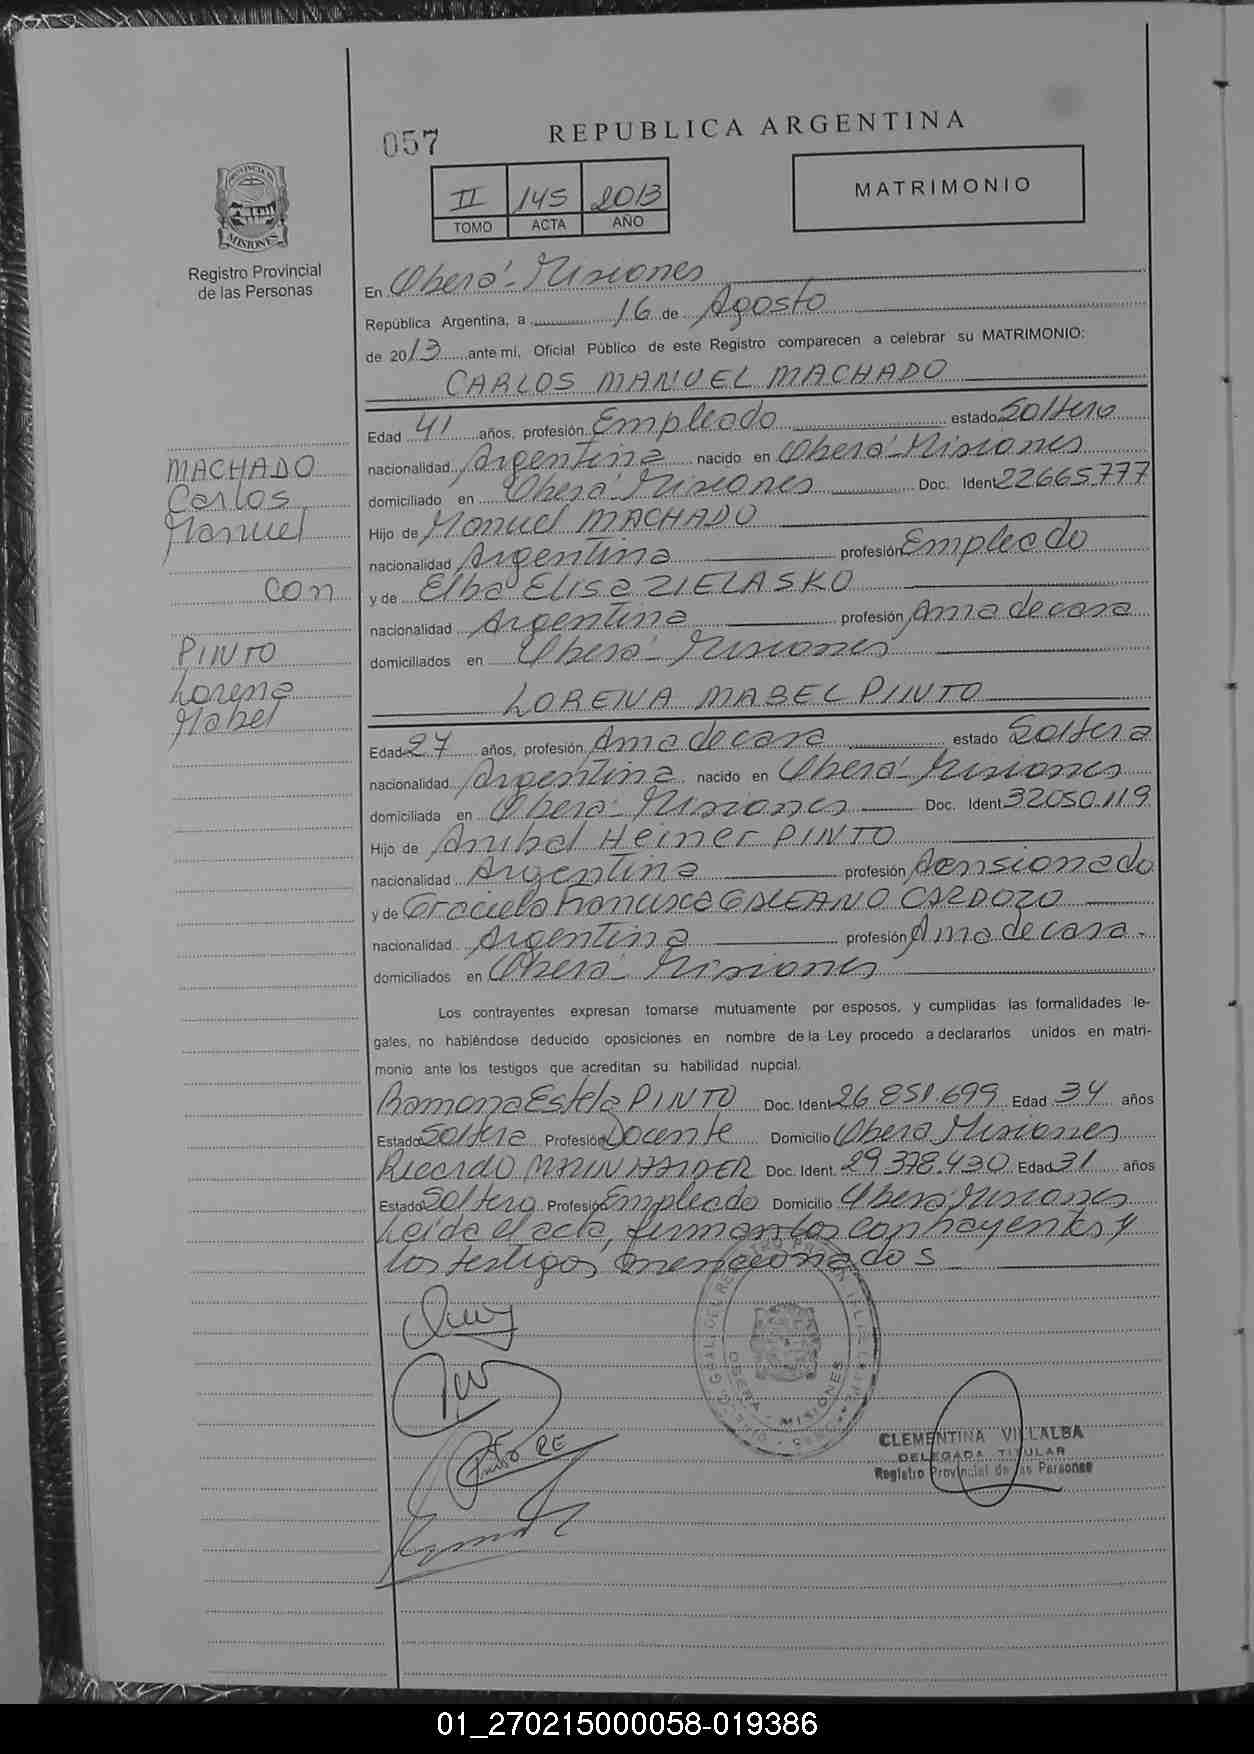 057
REPUBLICA ARGENTINA
II 145 2013
TOMO ACTA AÑO
MATRIMONIO
PROVINCIA DE
MISIONES
Registro Provincial
de las Personas
En Oberá - Misiones
República Argentina, a 16 de Agosto
de 2013 ante mí, Oficial Público de este Registro comparecen a celebrar su MATRIMONIO:
CARLOS MANUEL MACHADO
Edad 41 años, profesión Empleado estado Soltero
nacionalidad Argentina nacido en Oberá - Misiones
domiciliado en Oberá - Misiones Doc. Ident 22665.777
Hijo de Manuel MACHADO
nacionalidad Argentina profesión Empleado
y de Elba Elisa ZIELASKO
nacionalidad Argentina profesión Ama de casa
domiciliados en Oberá - Misiones
MACHADO
Carlos
Manuel
con
PINTO
Lorena
Mabel
LORENA MABEL PINTO
Edad 27 años, profesión Ama de casa estado Soltera
nacionalidad Argentina nacido en Oberá - Misiones
domiciliada en Oberá - Misiones Doc. Ident 32050.119
Hijo de Anibal Heiner PINTO
nacionalidad Argentina profesión Pensionado
y de Graciela Francisca GALEANO CARDOZO
nacionalidad Argentina profesión Ama de casa -
domiciliados en Oberá - Misiones
Los contrayentes expresan tomarse mutuamente por esposos, y cumplidas las formalidades le-
gales, no habiéndose deducido oposiciones en nombre de la Ley procedo a declararlos unidos en matri-
monio ante los testigos que acreditan su habilidad nupcial.
Ramona Estela PINTO Doc. Ident 26.851.699 Edad 34 años
Estado Soltera Profesión Docente Domicilio Oberá Misiones
Ricardo Doc. Ident. 29.378.430 Edad 31 años
Estado Soltero Profesión Empleado Domicilio Oberá Misiones
Leída el acta, firman los contrayentes y
los testigos mencionados
OBERA - MISIONES
Pinto RE
CLEMENTINA VILLALBA
DELEGADA TITULAR
Registro Provincial de las Personas
01_270215000058-019386